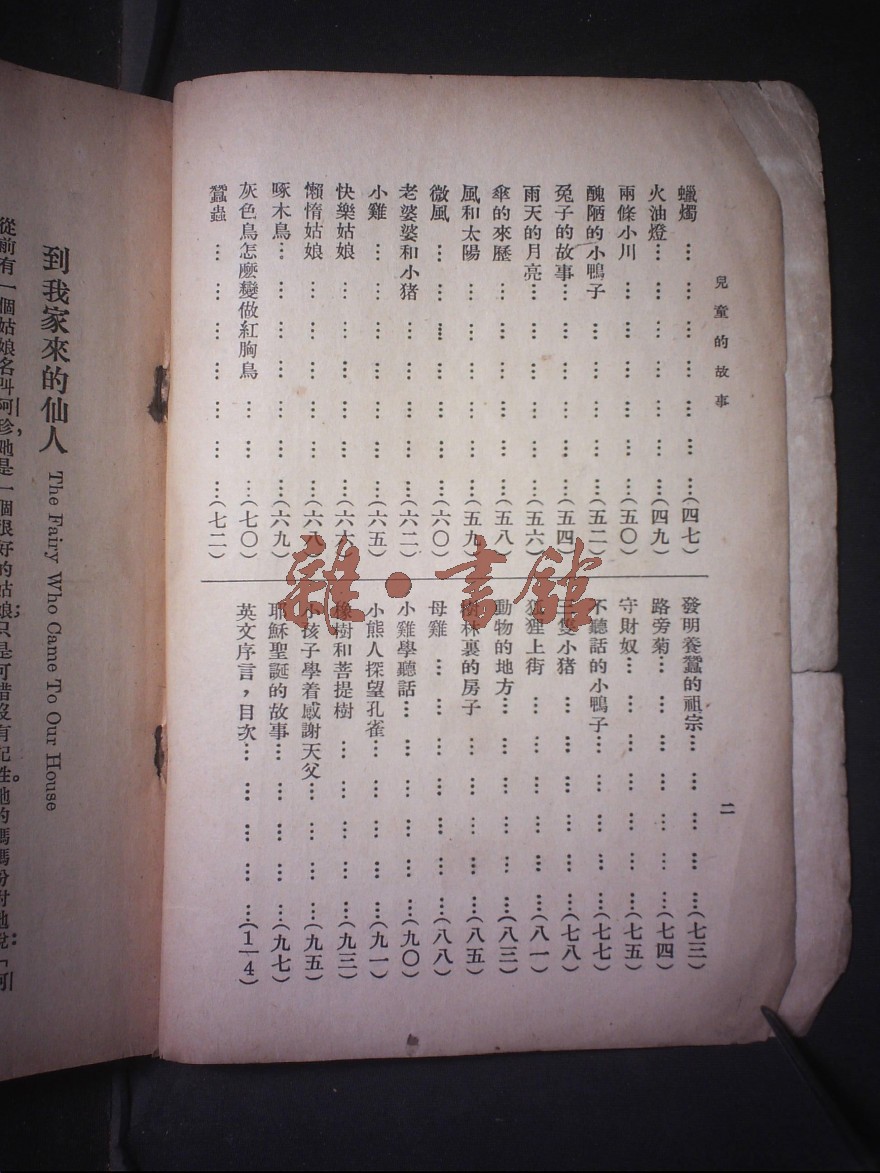 兒童的故事
二
蠟燭……………………(四七)
火油燈……………………(四九)
兩條小川……………………(五〇)
醜陋的小鴨子……………………(五二)
兔子的故事……………………(五四)
雨天的月亮……………………(五六)
傘的來歷……………………(五八)
風和太陽……………………(五九)
微風……………………(六〇)
老婆婆和小猪……………………(六二)
小雞……………………(六五)
快樂姑娘……………………(六六)
懶惰姑娘……………………(六八)
啄木鳥……………………(六九)
灰色鳥怎麽變做紅胸鳥……………………(七〇)
蠶蟲……………………(七二)
發明養蠶的祖宗……………………(七三)
路旁菊……………………(七四)
守財奴……………………(七五)
不聽話的小鴨子……………………(七七)
三隻小猪……………………(七八)
狐狸上街……………………(八一)
動物的地方……………………(八三)
樹林裏的房子……………………(八五)
母雞……………………(八八)
小雞學聽話……………………(九〇)
小熊人探望孔雀……………………(九一)
橡樹和菩提樹……………………(九三)
小孩子學着感謝天父……………………(九五)
耶穌聖誕的故事……………………(九七)
英文序言，目次……………………(1—4)
雜·書館
到我家來的仙人 The Fairy Who Came To Our House
從前有一個姑娘名叫阿珍，她是一個很好的姑娘；只是可惜沒有記性。她的媽媽吩咐她說：「阿